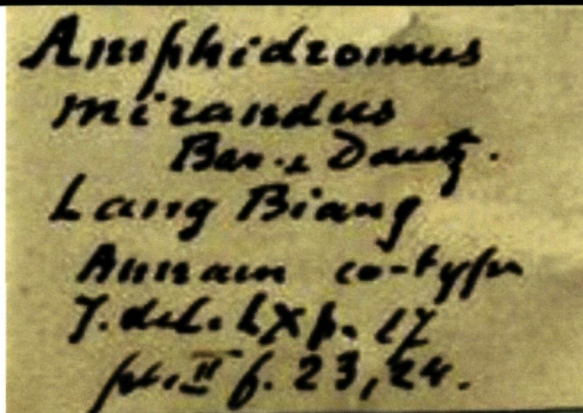 Amphidromus
mirandus
Bav. & Dautz.
Lang Biang
Annam co-type
J. de C. LX p. 17
pl. II f. 23, 24.